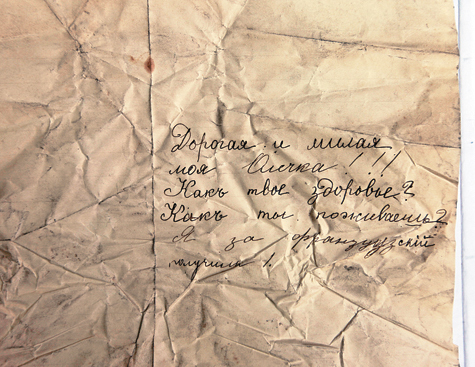 Дорогая и милая
моя Олечка!!!
Какъ твое здоровье?
Какъ ты поживаешь?
Я за французскій
получила 1.